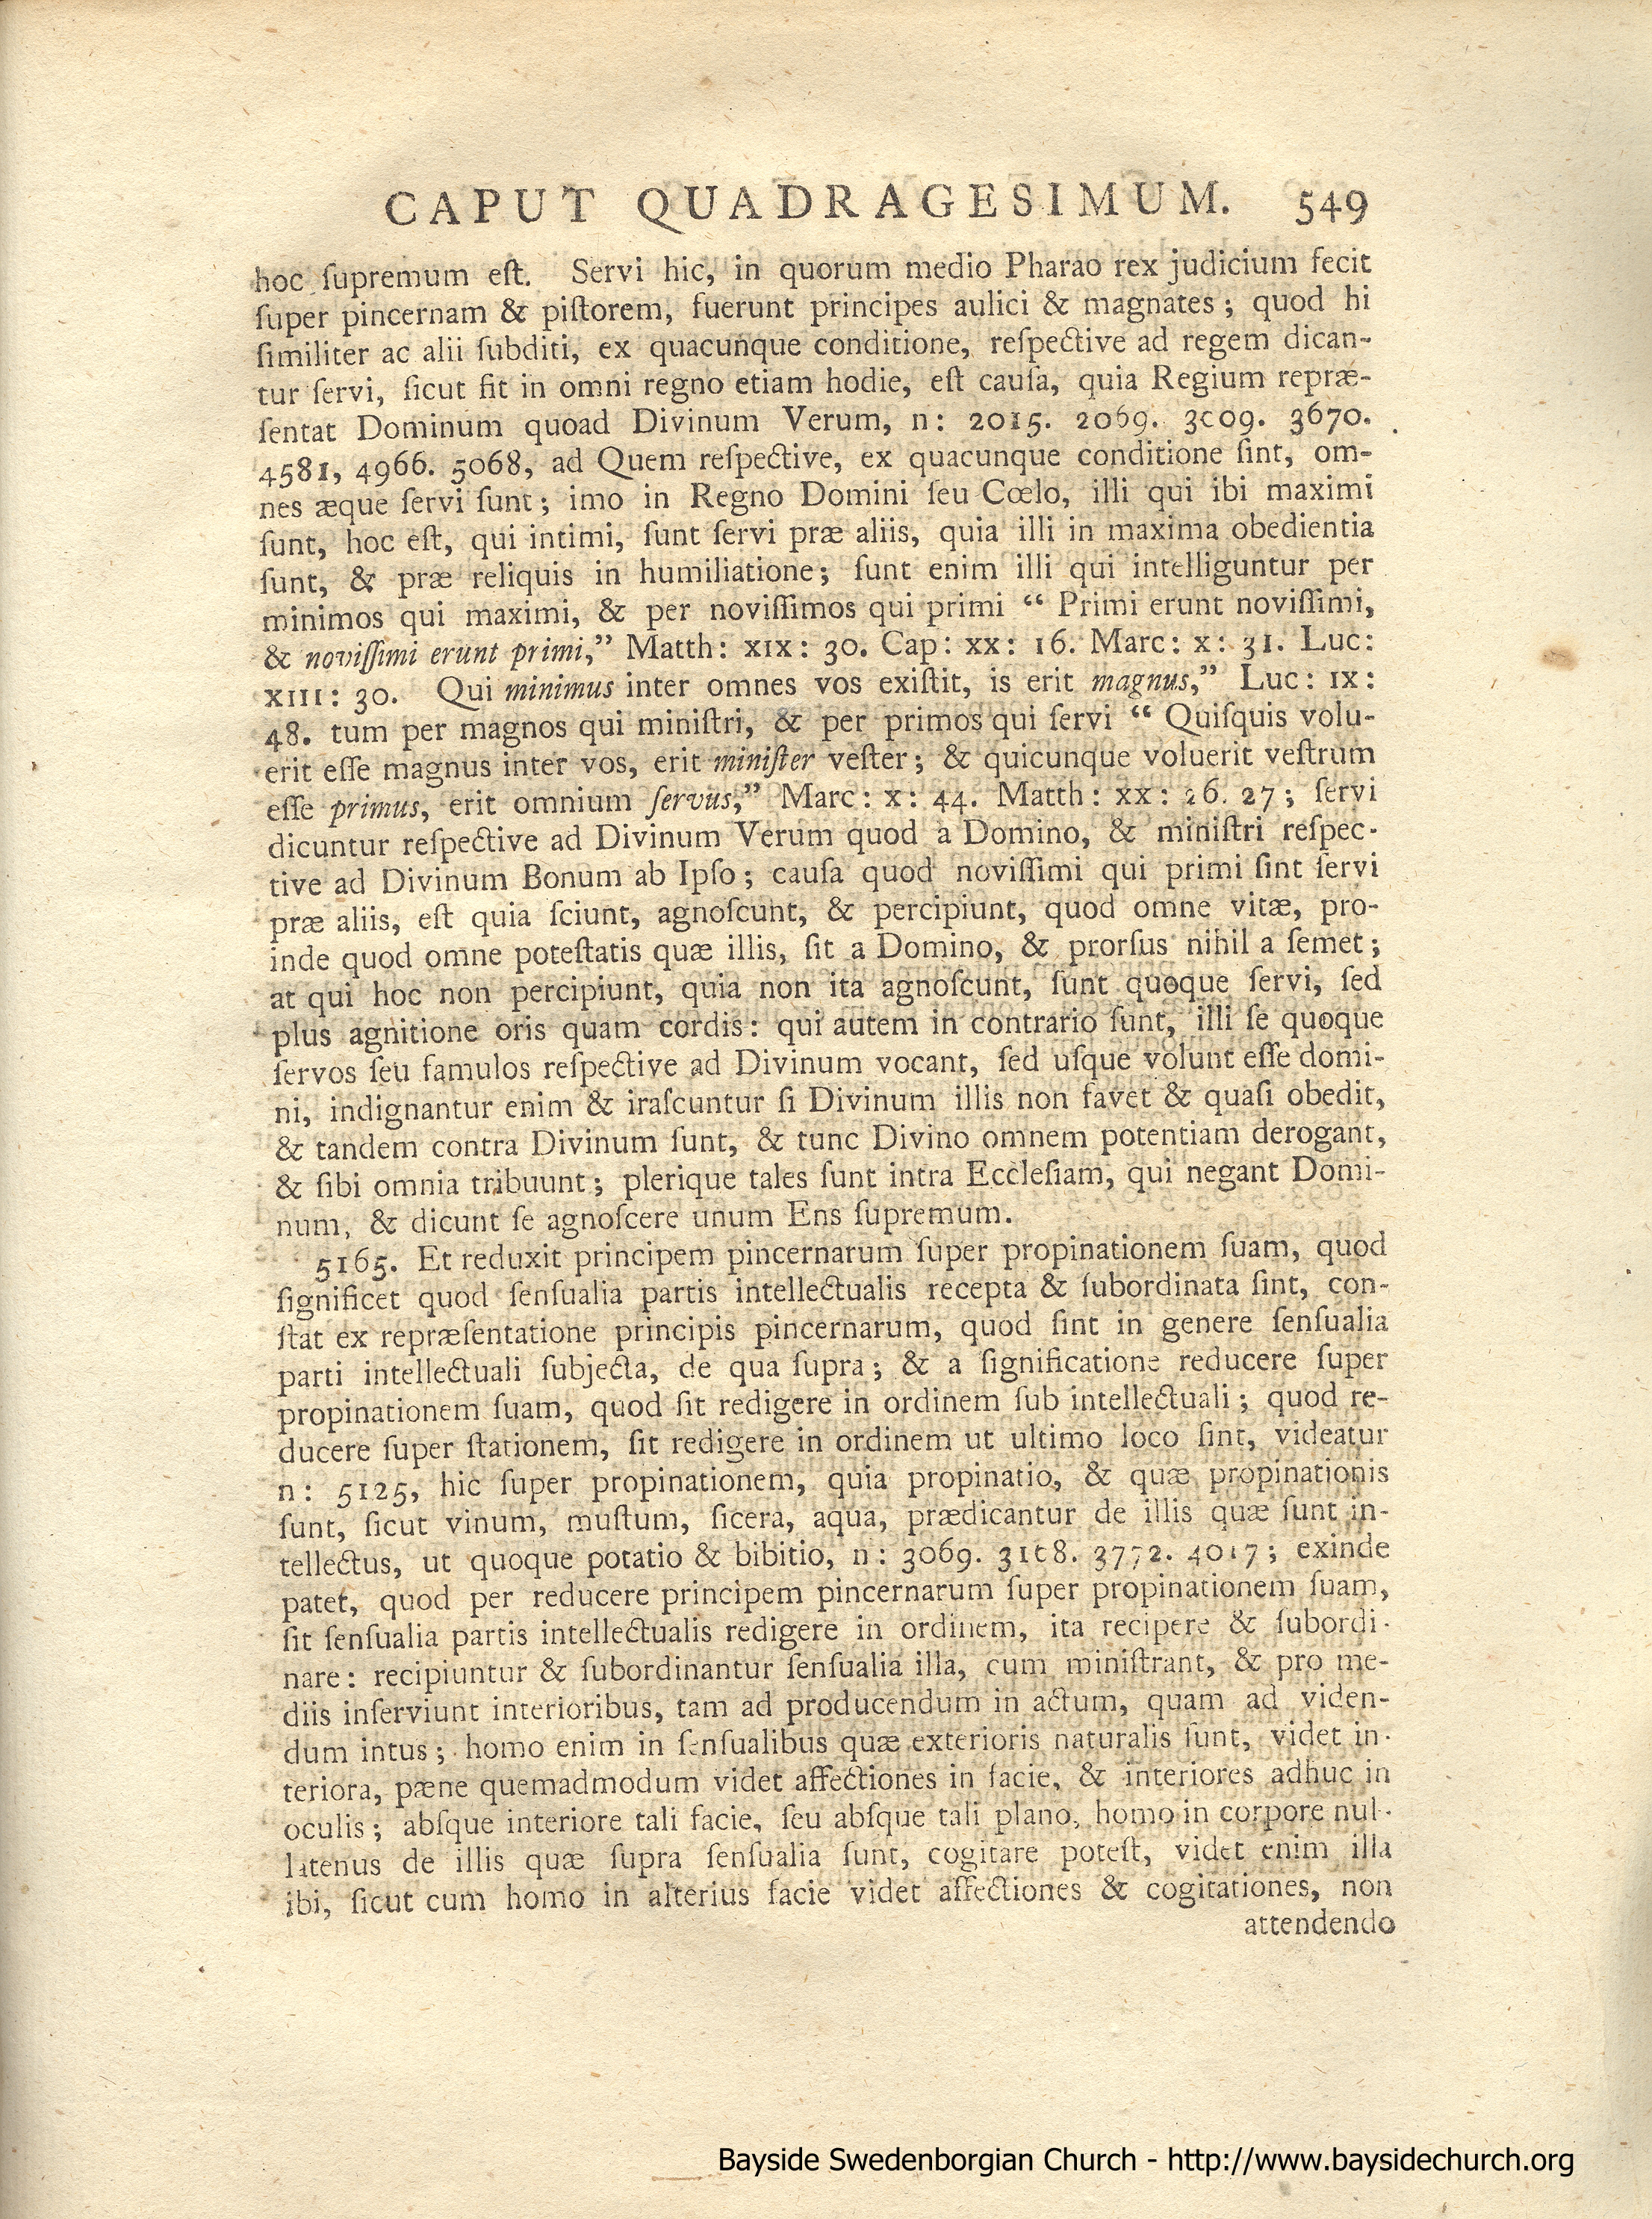 CAPUT QUADRAGESIMUM. 549
hoc ſupremum eſt. Servi hic, in quorum medio Pharao rex judicium fecit
ſuper pincernam & piſtorem, fuerunt principes aulici & magnates; quod hi
ſimiliter ac alii ſubditi, ex quacunque conditione, reſpective ad regem dican-
tur ſervi, ſicut fit in omni regno etiam hodie, eſt cauſa, quia Regium repræ-
ſentat Dominum quoad Divinum Verum, n: 2015. 2069. 3009. 3670.
4581, 4966. 5068, ad Quem reſpective, ex quacunque conditione ſint, om-
nes æque ſervi ſunt; imo in Regno Domini ſeu Cœlo, illi qui ibi maximi
ſunt, hoc eſt, qui intimi, ſunt ſervi præ aliis, quia illi in maxima obedientia
ſunt, & præ reliquis in humiliatione; ſunt enim illi qui intelliguntur per
minimos qui maximi, & per noviſſimos qui primi “ Primi erunt noviſſimi,
& noviſſimi erunt primi,” Matth: XIX: 30. Cap: XX: 16. Marc: X: 31. Luc:
XIII: 30. Qui minimus inter omnes vos exiſtit, is erit magnus,” Luc: IX:
48. tum per magnos qui miniſtri, & per primos qui ſervi “ Quiſquis volu-
erit eſſe magnus inter vos, erit miniſter veſter; & quicunque voluerit veſtrum
eſſe primus, erit omnium ſervus,” Marc: X: 44. Matth: XX: 26. 27; ſervi
dicuntur reſpective ad Divinum Verum quod a Domino, & miniſtri reſpec-
tive ad Divinum Bonum ab Ipſo; cauſa quod noviſſimi qui primi ſint ſervi
præ aliis, eſt quia ſciunt, agnoſcunt, & percipiunt, quod omne vitæ, pro-
inde quod omne poteſtatis quæ illis, ſit a Domino, & prorſus nihil a ſemet;
at qui hoc non percipiunt, quia non ita agnoſcunt, ſunt quoque ſervi, ſed
plus agnitione oris quam cordis: qui autem in contrario ſunt, illi ſe quoque
ſervos ſeu famulos reſpective ad Divinum vocant, ſed uſque volunt eſſe domi-
ni, indignantur enim & iraſcuntur ſi Divinum illis non favet & quaſi obedit,
& tandem contra Divinum ſunt, & tunc Divino omnem potentiam derogant,
& ſibi omnia tribuunt; plerique tales ſunt intra Eccleſiam, qui negant Domi-
num, & dicunt ſe agnoſcere unum Ens ſupremum.
5165. Et reduxit principem pincernarum ſuper propinationem ſuam, quod
ſignificet quod ſenſualia partis intellectualis recepta & ſubordinata ſint, con-
ſtat ex repræſentatione principis pincernarum, quod ſint in genere ſenſualia
parti intellectuali ſubjecta, de qua ſupra; & a ſignificatione reducere ſuper
propinationem ſuam, quod ſit redigere in ordinem ſub intellectuali; quod re-
ducere ſuper ſtationem, ſit redigere in ordinem ut ultimo loco ſint, videatur
n: 5125, hic ſuper propinationem, quia propinatio, & quæ propinationis
ſunt, ſicut vinum, muſtum, ſicera, aqua, prædicantur de illis quæ ſunt in-
tellectus, ut quoque potatio & bibitio, n: 3069. 3168. 3772. 4017; exinde
patet, quod per reducere principem pincernarum ſuper propinationem ſuam,
ſit ſenſualia partis intellectualis redigere in ordinem, ita recipere & ſubordi-
nare: recipiuntur & ſubordinantur ſenſualia illa, cum miniſtrant, & pro me-
diis inſerviunt interioribus, tam ad producendum in actum, quam ad viden-
dum intus; homo enim in ſenſualibus quæ exterioris naturalis ſunt, videt in-
teriora, pæne quemadmodum videt affectiones in facie, & interiores adhuc in
oculis; abſque interiore tali facie, ſeu abſque tali plano, homo in corpore nul-
latenus de illis quæ ſupra ſenſualia ſunt, cogitare poteſt, videt enim illa
ibi, ſicut cum homo in alterius facie videt affectiones & cogitationes, non
attendendo
Bayside Swedenborgian Church - http://www.baysidechurch.org